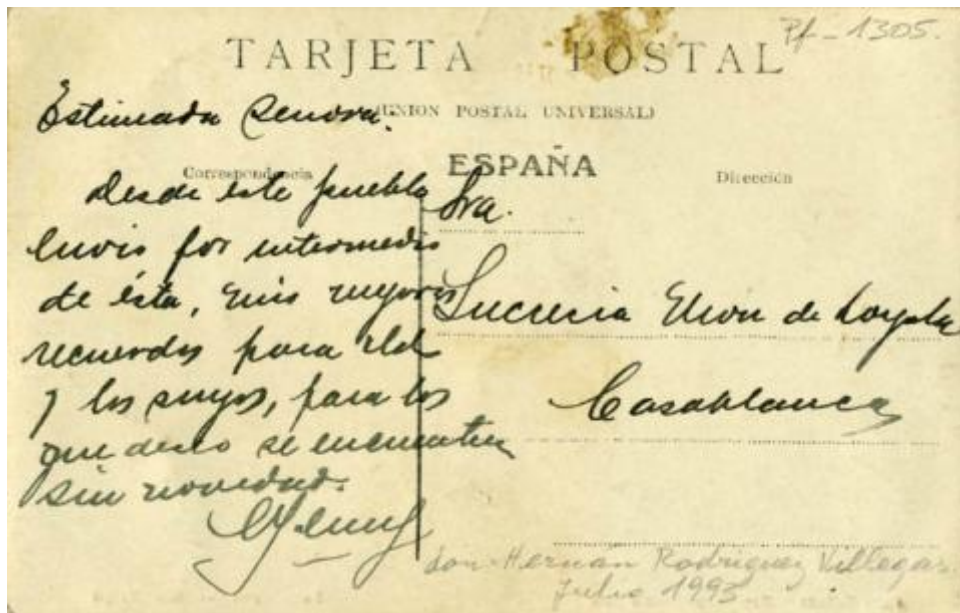 Pf-1305.
TARJETA POSTAL
(UNION POSTAL UNIVERSAL)
ESPAÑA
Correspondencia
Dirección
Estimada Senora.
Desde este pueblo
envio por intermedio
de ésta, mis mejores
recuerdos para Ud
y los suyos, para los
que deseo se encuentren
sin novedad.
Sra.
Lucrecia de Loyola
Casablanca
don Hernán Rodríguez Villegas.
Julio 1995